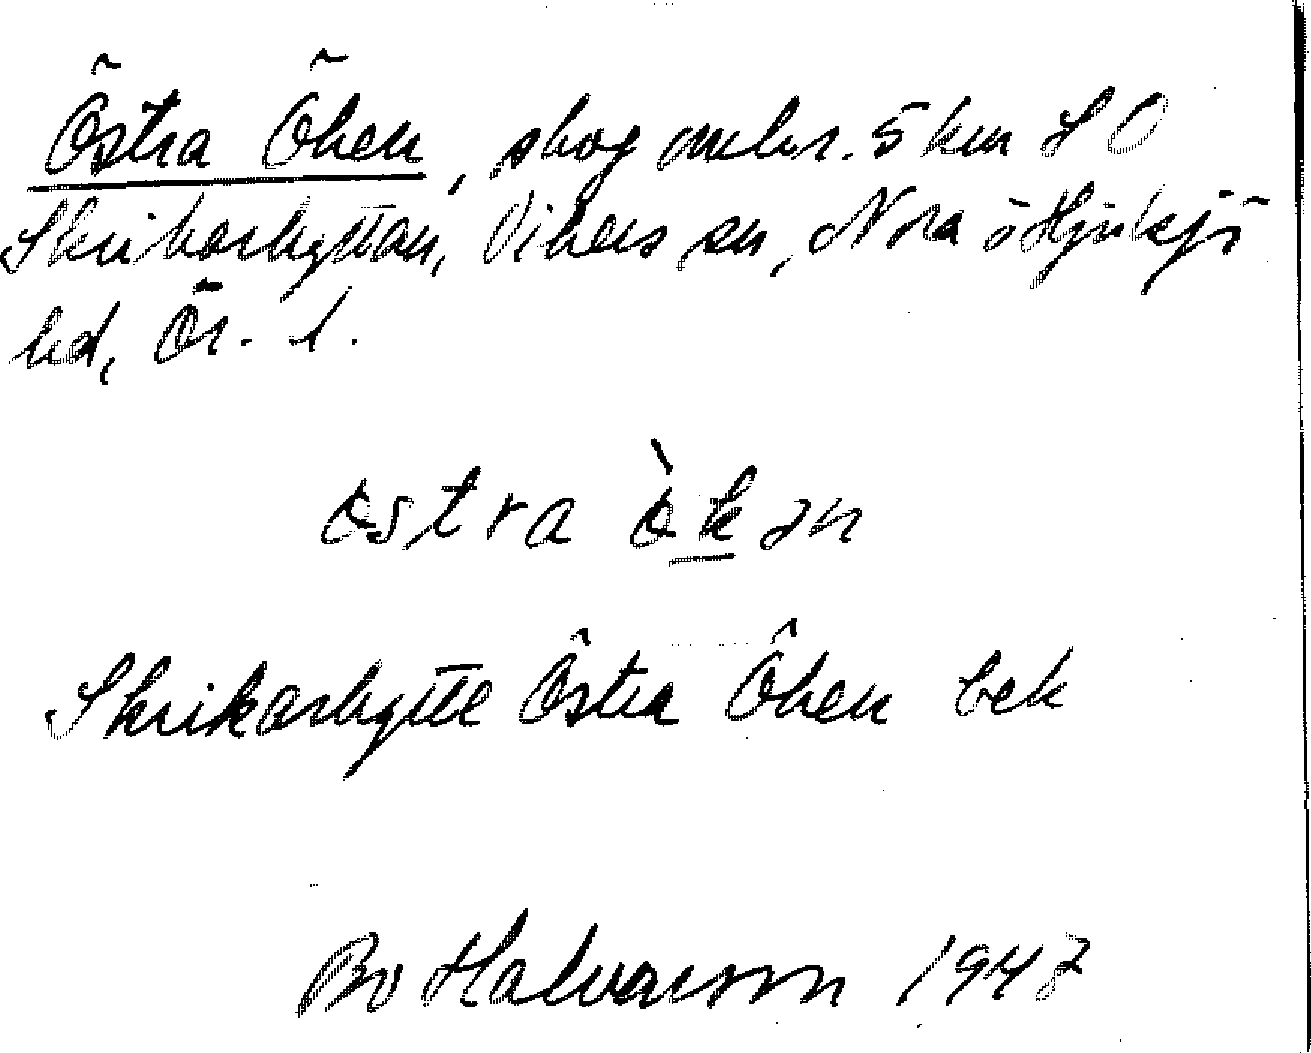 Östra Öken, skog omkr. 5 km SO
Skrikarhyttan, Vikers sn, Nora o Hjulsjö
bd, Ör. l.
östra ò̀kən
Skrikarhytte Östra Öken bek
Bo Halvarson